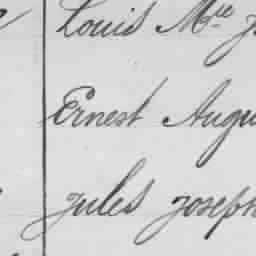 Louis Mie J
Ernest Augu
Jules Joseph